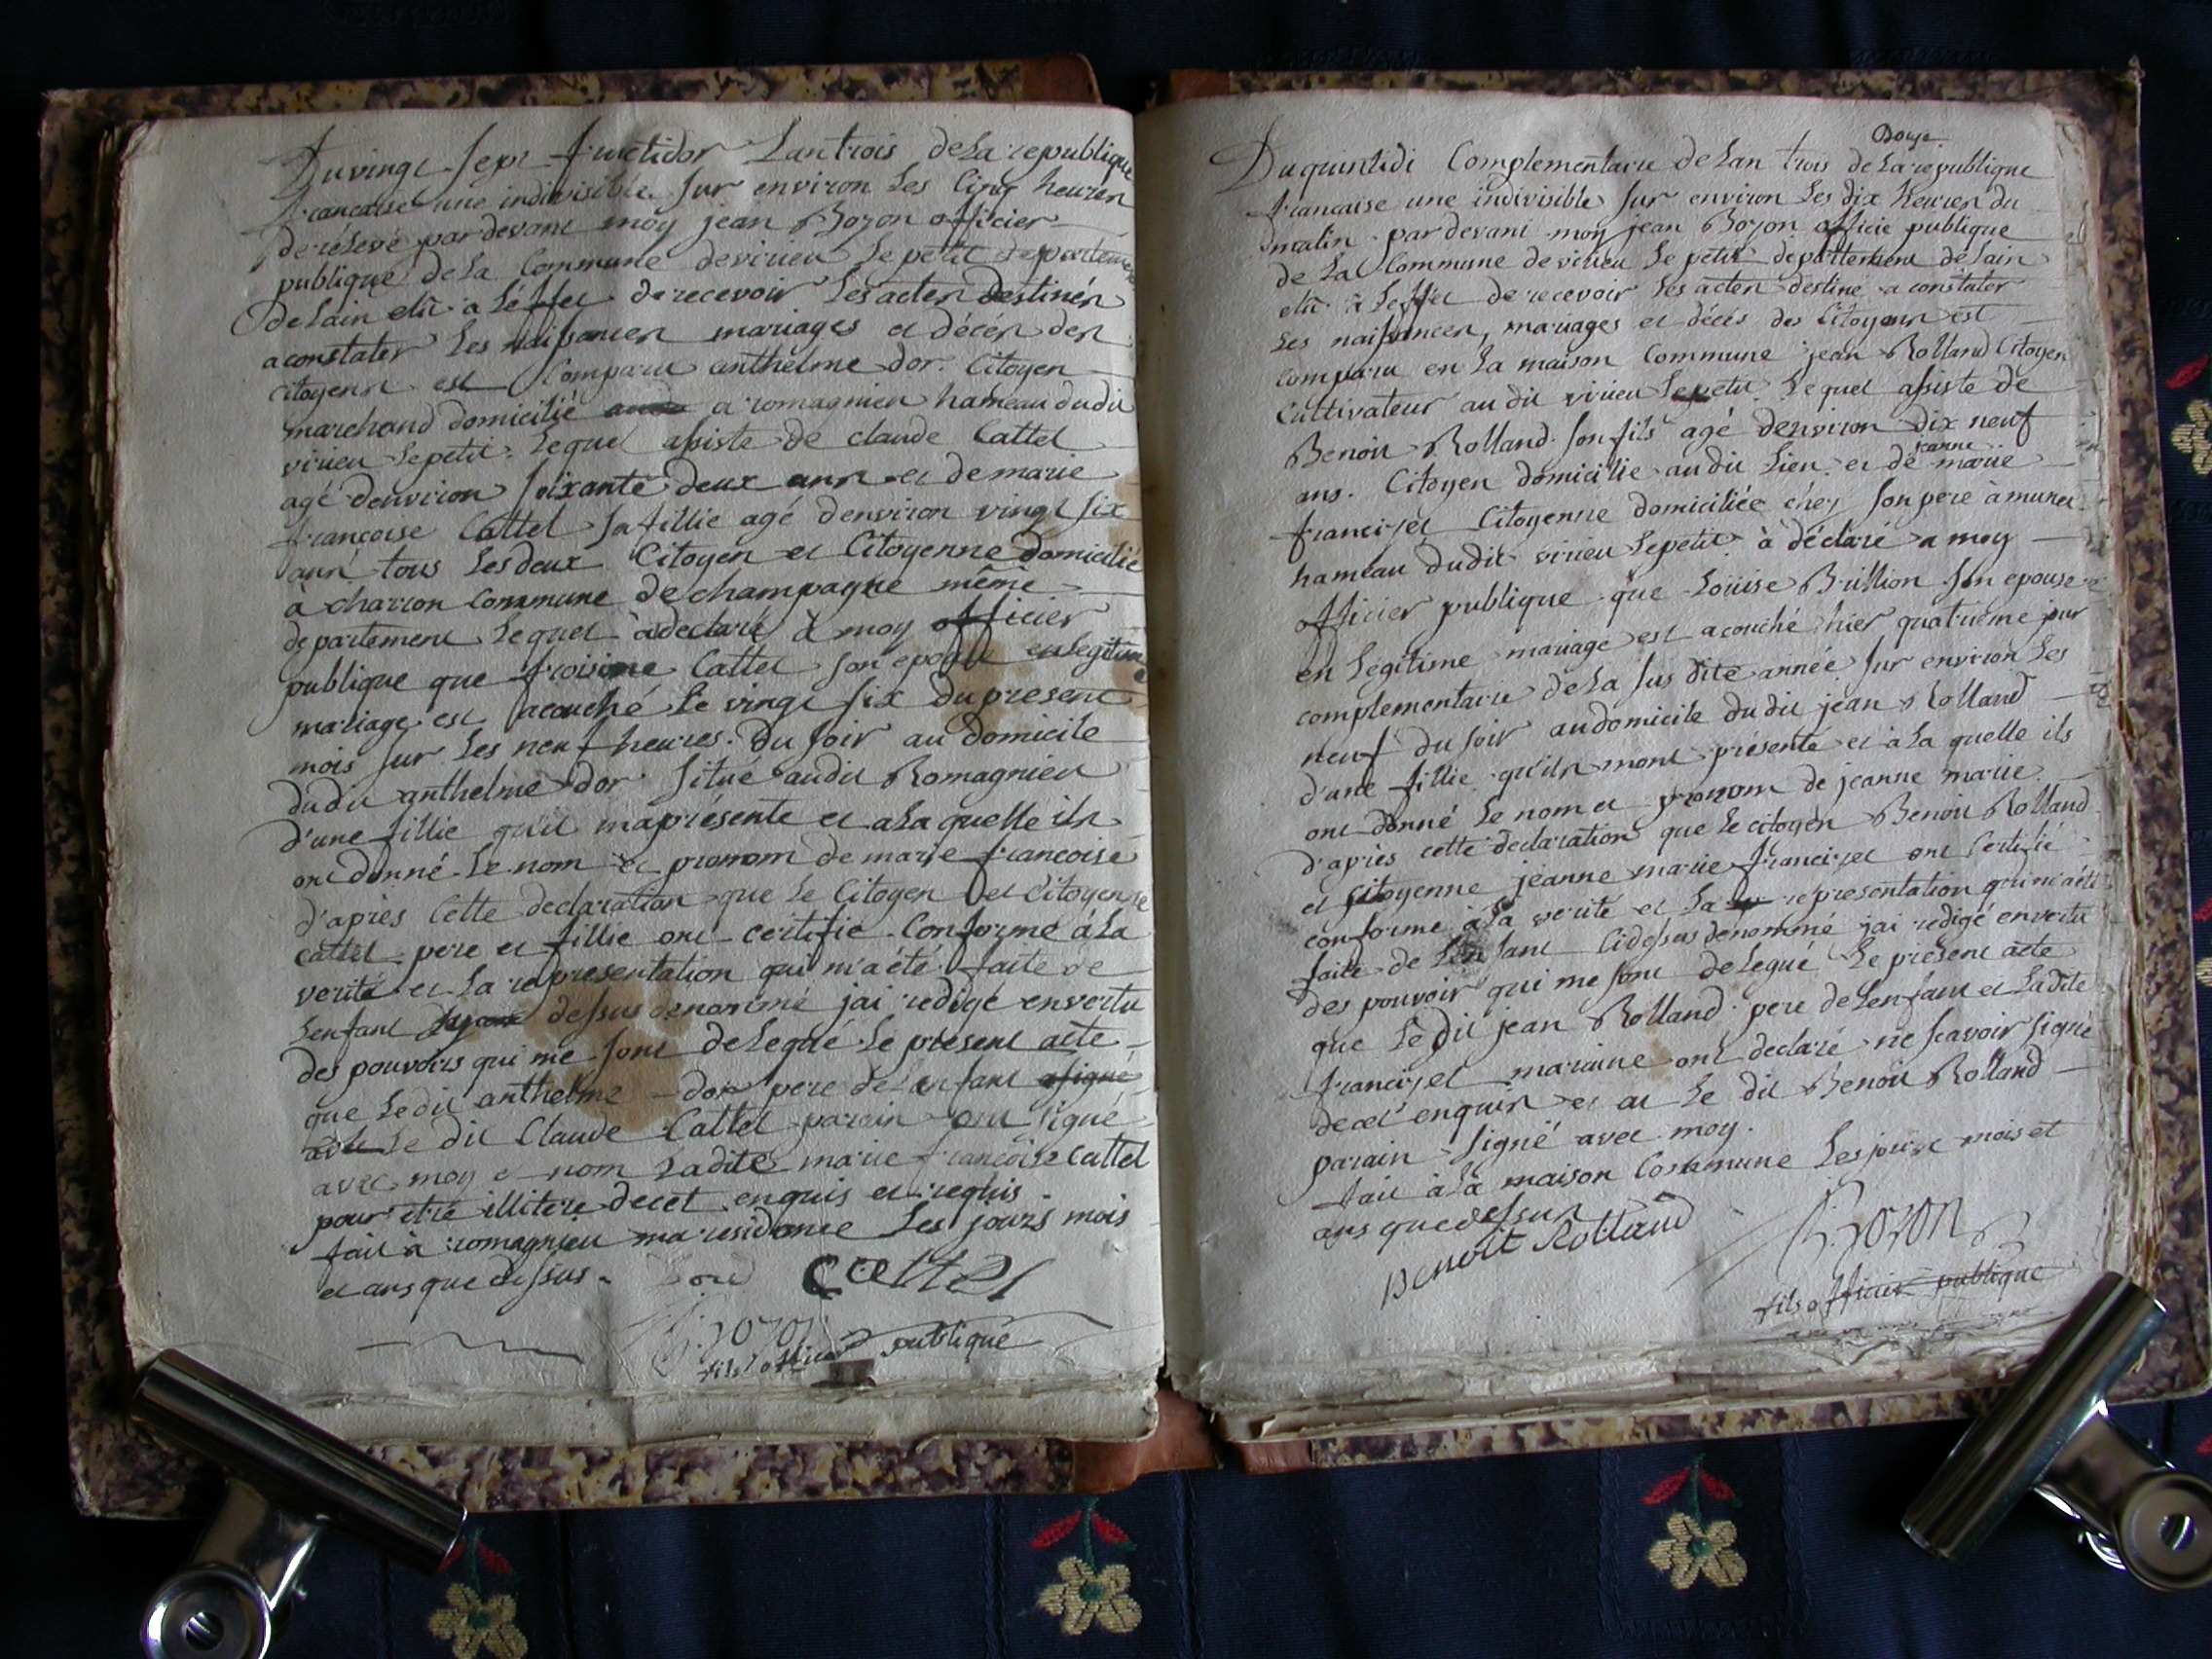 Du vingt sept fructidor Lan trois de La republique
francaise une indivisible. sur environ Les Cinq heures
de rélevé par devant moy jean Bozon officier
publique de La Commune devirieu Le petit departement
de Lain elû a Léffet de recevoir Les actes destinés
a constater Les naissances mariages et décés des
Citoyens est Comparu anthelme dor. Citoyen
marchand domicilié a romagnieu hameau dudit
virieu Le petit. Le quel assiste de claude Cattel
agé denviron soixante deux ans et de marie
francoise Cattel sa fillie agé denviron vingt six
ans tous Les deux Citoyen et Citoyenne domicilié
à charron Commune de champagne même
departement Le quel à declaré à moy officier
publique que Cattel son epouse en legitime
mariage est acouché Le vingt six du present
mois sur Les neuf heures. Du soir au Domicile
dudit anthelme dor situé audit Romagnieu
d'une fillie qu'il ma présente et a La quelle ils
ont donné Le nom et pronom de marie francoise
d'apries Cette declaration que Le Citoyen et Citoyenne
Cattel pere et fillie ont certifie Conforme à La
verité et La representation qui m'a été faite de
Lenfant dessus denommé jai redigé en vertu
des pouvoirs qui me sont delegué Le présent acte
que Le dit anthelme dor pere de Lenfant a signé
avec Le dit Claude Cattel parain ont signé
avec moy et nom La dite marie francoise Cattel
pour etre illitere decet enquis et requis
fait à romagnieu ma residance Les jours mois
et ans que dessus.
Cattel
Bozon
fils officier publique
Douze
Du quintidi Complementaire de Lan trois de La republique
francaise une indivisible sur environ Les dix heures du
matin par devant moy jean Bozon officie publique
de La Commune de virieu Le petit departtement de Lain
elû à Leffet de recevoir Les actes destine a constater
Les naissances, mariages et décés des Citoyens est
comparu en La maison Commune jean Rolland Citoyen
Cultivateur au dit virieu Le petit. Le quel assiste de
Benoit Rolland son fils agé denviron dix neuf
ans. Citoyen domicilie au dit Lieu. et de jeanne marie
francizet Citoyenne domiciliée chez son pere à munet
hameau dudit virieu Le petit à déclaré a moy
officier publique que Louise Brillion son epouse
en Legitime mariage est acouché hier quatrieme jour
complementaire de La sus dite année sur environ Les
neuf du soir au domicile du dit jean Rolland
d'une fillie qu'ils mont présenté et à La quelle ils
ont donné Le nom et pronom de jeanne marie
d'apries cette declaration que Le citoyen Benoit Rolland
et Citoyenne jeanne marie francizet ont Certifié
conforme à La verité et La representation qui m'a été
faite de Lenfant Cidessus denommé jai redigé en vertu
des pouvoir qui me sont delegué Le présent acte
que Le dit jean Rolland pere de Lenfant et La dite
francizet maraine ont declaré ne scavoir signé
decet enquis et a Le dit Benoit Rolland
parain signé avec moy.
fait à La maison Commune Les jour mois et
ans que dessus
Benoit Rolland
Bozon
fils officier publique